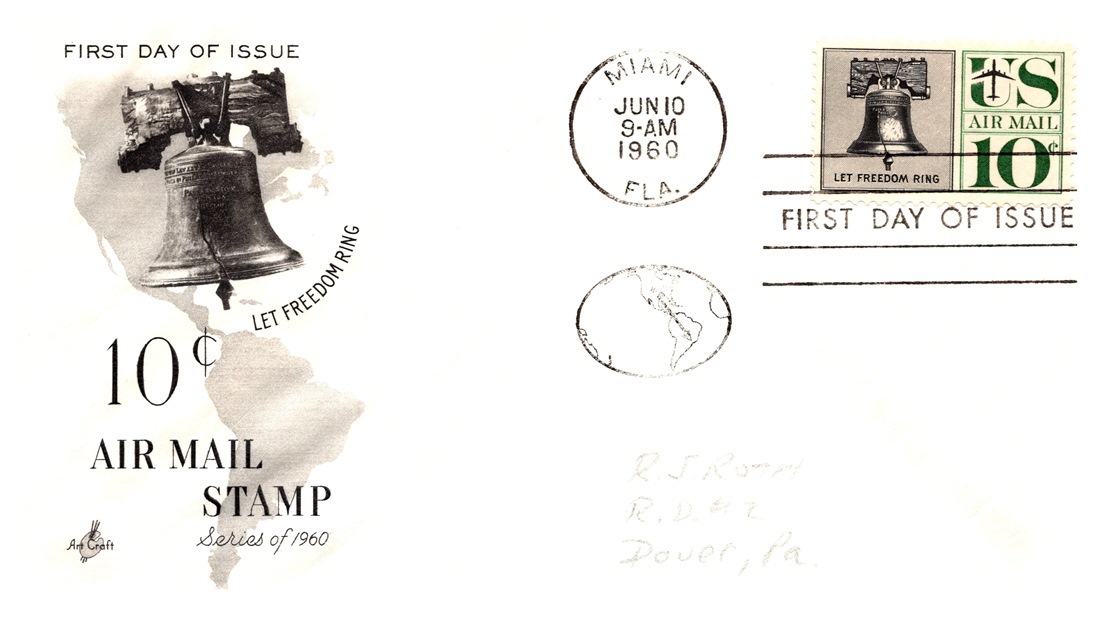 FIRST DAY OF ISSUE
LET FREEDOM RING
10¢
AIR MAIL
STAMP
Series of 1960
Art Craft
MIAMI
JUN 10
9-AM
1960
FLA.
LET FREEDOM RING
US
AIR MAIL
10¢
FIRST DAY OF ISSUE
R J
R.D. #2
Dover, Pa.